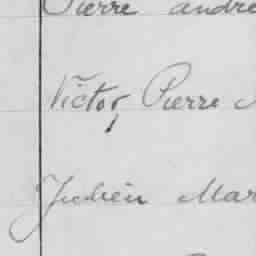 Pierre André
Victor, Pierre
Julien Mar